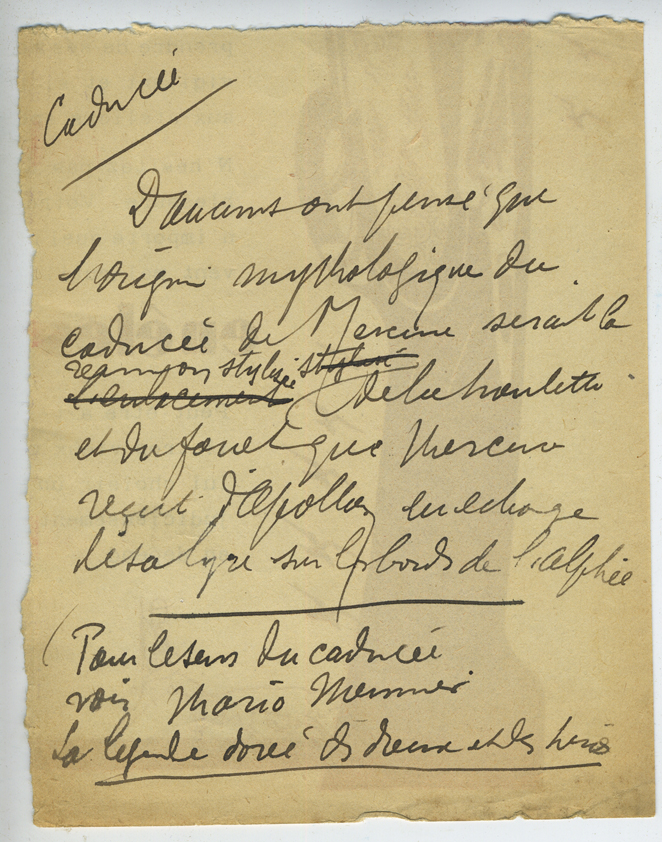 Caducée
D'aucuns ont pensé que
l'origine mythologique du
caducée de Mercure serait la
réunion stylisée stylisée
l'enlacement de la houlette
et du fouet que Mercure
reçut d'Apollon en échange
de sa lyre sur les bords de l'Alphée
(Pour le sens du caducée
voir Mario Meunier
La légende dorée des dieux et des héros